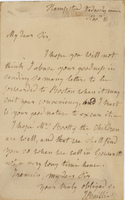 Hampstead
My dear Sir,
I hope you will not
think I abuse your goodness in
sending so many letters to be
forwarded to Boston when it may
suit your convenience, and I trust
to your good nature to excuse it.
I hope Mrs. & the children
are well, and that we shall find
you so when we call in
which may long time hence.
I remain, my dear Sir
your truly obliged